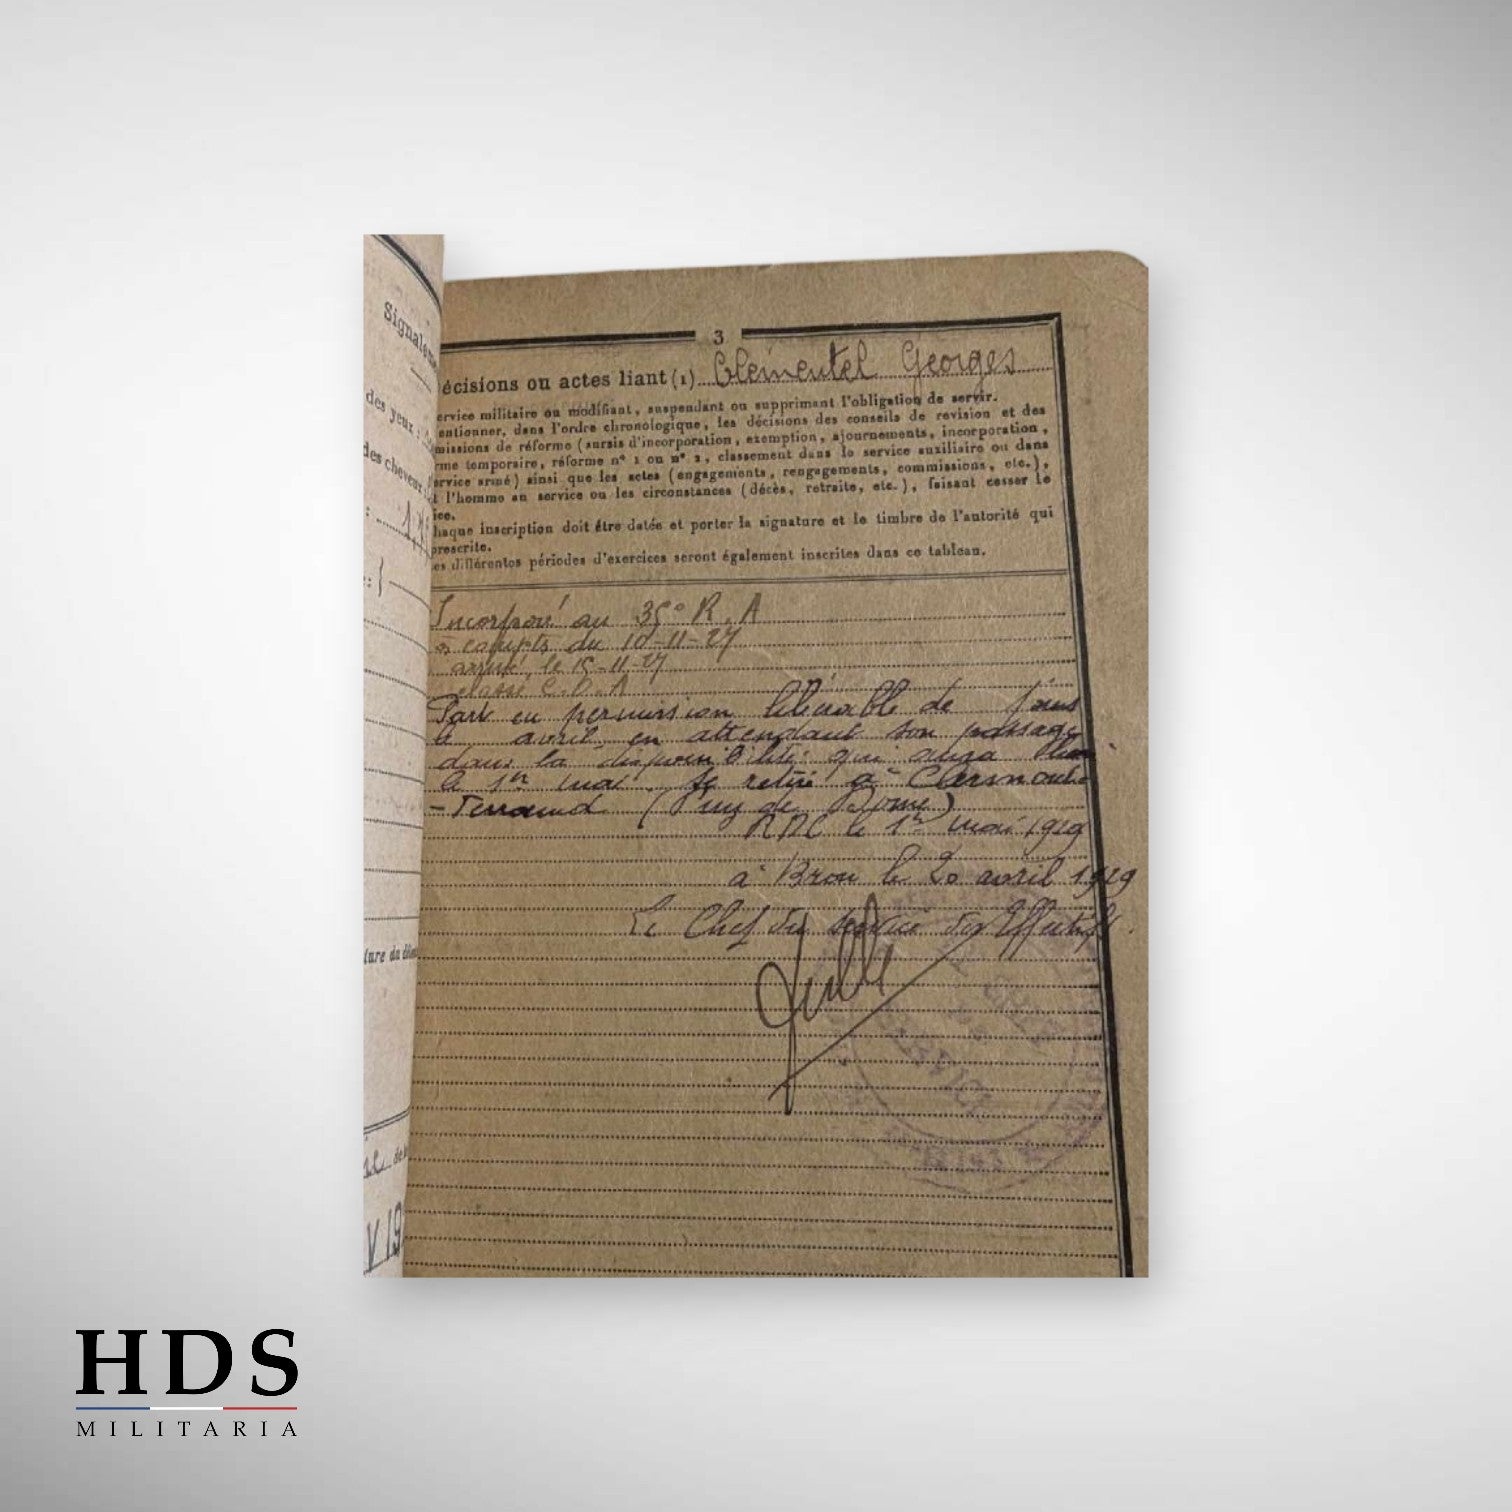 Signalem
des yeux :
des cheveux :
: 1,
ture du
de
V 19
3
écisions ou actes liant (1) Clémentel Georges
ervice militaire ou modifiant, suspendant ou supprimant l'obligation de servir.
entionner, dans l'ordre chronologique, les décisions des conseils de revision et des
missions de réforme (sursis d'incorporation, exemption, ajournements, incorporation,
rme temporaire, réforme n° 1 ou n° 2, classement dans le service auxiliaire ou dans
ervice armé) ainsi que les actes (engagements, rengagements, commissions, etc.),
t l'homme au service ou les circonstances (décès, retraite, etc.), faisant cesser le
ice.
haque inscription doit être datée et porter la signature et le timbre de l'autorité qui
prescrite.
es différentes périodes d'exercices seront également inscrites dans ce tableau.
Incorporé au 35° R. A
à compter du 10-11-27
arrivé le 15-11-27
classé C.O.A
Part en permission libérable de jours
le avril, en attendant son passage
dans la disponibilité qui aura lieu
le 1er mai se retire à Clermont-
-Ferrand (Puy de Dôme)
RDC le 1er mai 1929
à Bron le 20 avril 1929
Le Chef du service des Effectifs.
SERVICE
HDS
MILITARIA